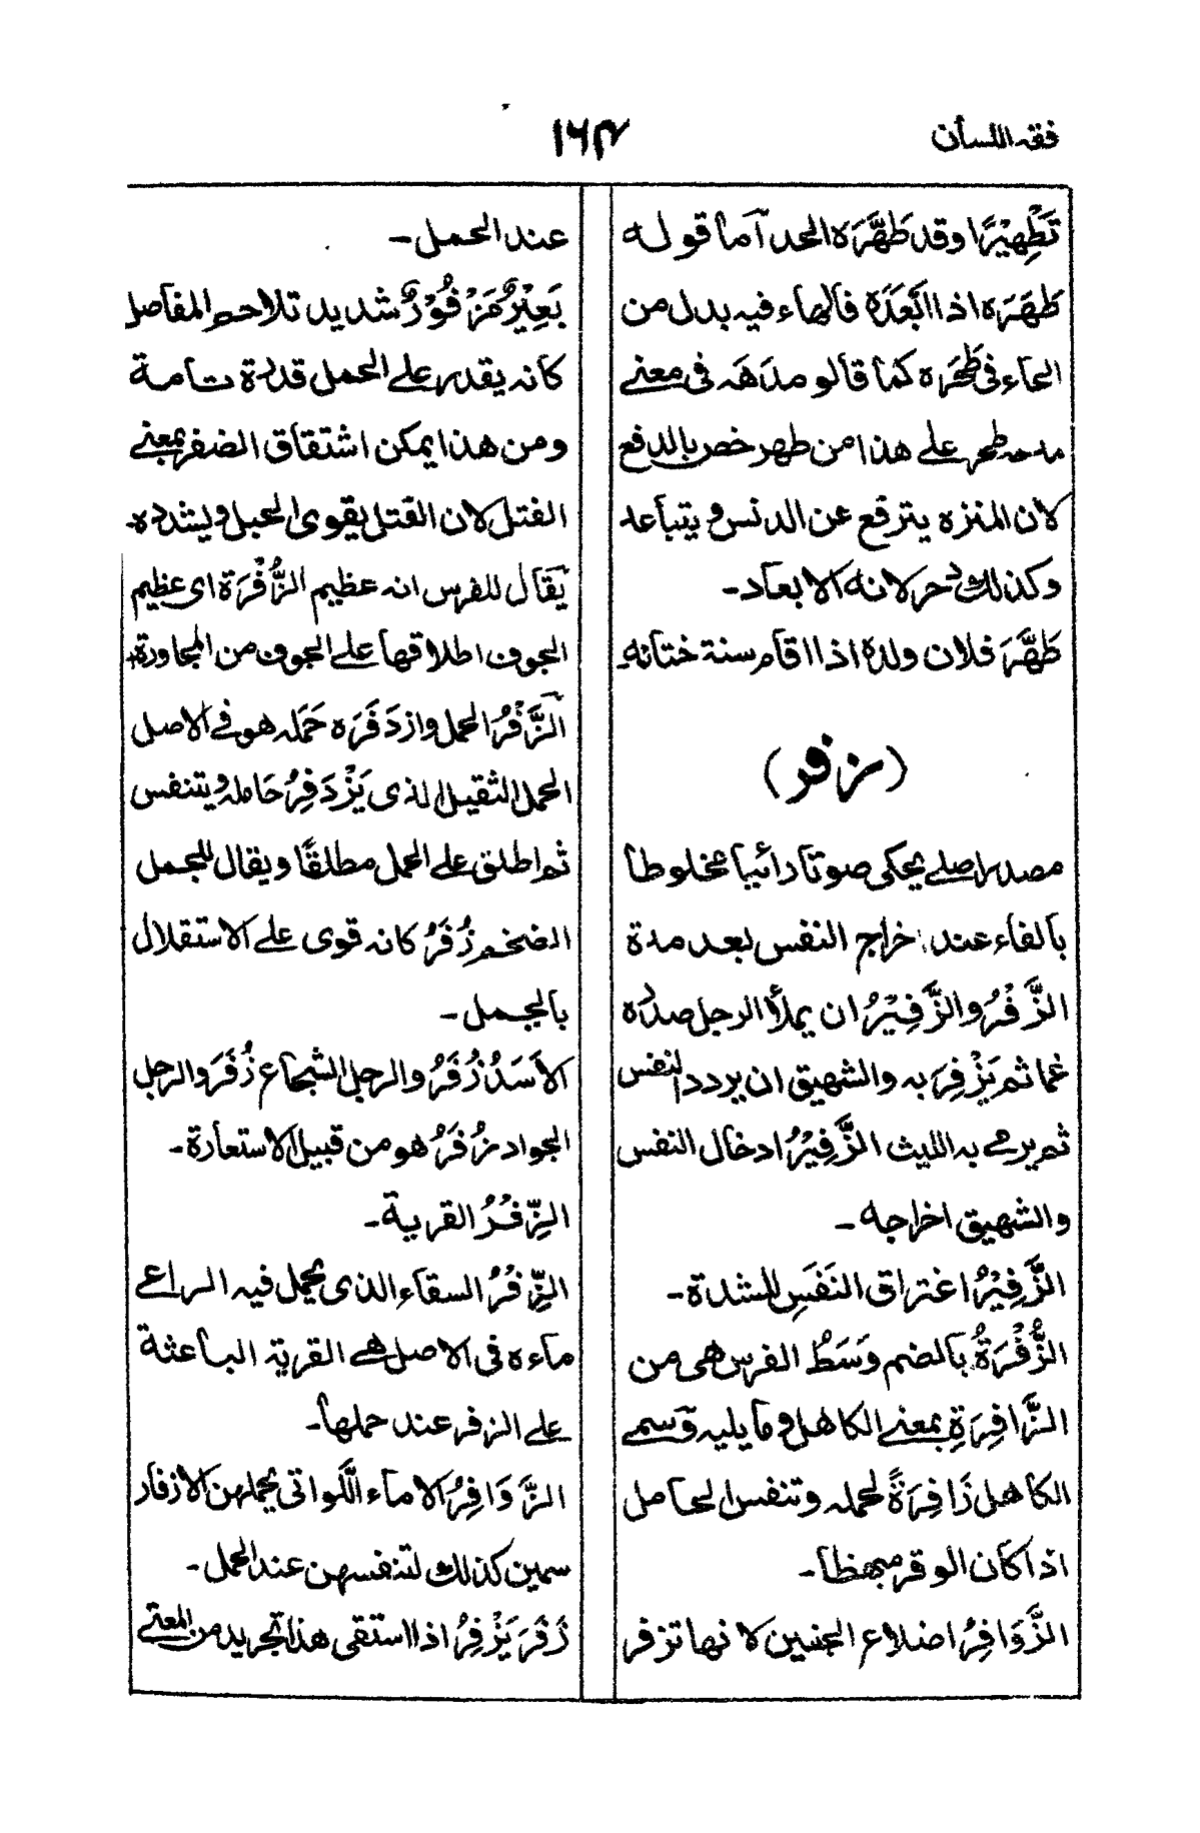 فقه اللسان
١٦٣
تَطْهِيْرًا وقد طَهَّرَه الحد آما قوله
طَهَرَه اذا اَبْعَدَهٗ فالهاء فيه بدل من
الحاء فى طَحَرَه كما قالو مدهَه فى معنے
مدحه طحر علے هذا من طهر خص بالدفع
لان المنزه يترفع عن الدنس ويتباعد
وكذلك دحر لانه الابعاد۔
طَهَّرَ فلان ولدهٗ اذا اقام سنة ختانه۔
(زفر)
مصدر اصلے يحكى صوتا دائبا مخلوطا
بالفاء عند اخراج النفس بعد مدة
الزَّفْرُ والزَّفِيْرُ ان يملأ الرجل صدره
غما ثم يَزْفِرَ به والشهيق ان يردد النفس
ثم يرمے به الليث الزَّفِيْرُ ادخال النفس
والشهيق اخراجه۔
الزَّفِيْرُ اغتراق النَفَسِ للشدة۔
الزُّفْرَةُ بالضم وَسَطُ الفرس هى من
الزَّافِرَةِ بمعنے الكاهل وما يليه وسمے
الكاهل زَافِرَةً لحمله وتنفس الحامل
اذا كان الوقر مبهظا۔
الزَّوَافِرُ اضلاع الجنبين لانها تزفر
عند الحمل۔
بَعِيْرٌ مَزْفُوْرٌ شديد تلاحم المفاصل
كانه يقدر علے الحمل قدرة تامة
ومن هذا يمكن اشتقاق الضفر بمعنے
الفتل لان الفتل يقوى الحبل ويشدده۔
يقال للفرس انه عظيم الزُّفْرَة اى عظيم
الجوف اطلاقها علے الجوف من المجاورة۔
الزَّفْرُ الحمل وازدَفَرَه حَمَله هو فے الاصل
الحمل الثقيل الذى يَزْدَفِرُ حامله ويتنفس
ثم اطلق علے الحمل مطلقًا ويقال للجمل
الضخم زُفَرُ كانه قوى علے الاستقلال
بالحمل۔
الاَسَدُ زُفَرُ والرجل الشجاع زُفَرَ والرجل
الجواد زُفَرُ هو من قبيل الاستعارة۔
الزِّفْرُ القربة۔
الزِّفْرُ السقاء الذى يحمل فيه الراعے
ماءه فى الاصل هے القربة الباعثة
علے الزفر عند حملها۔
الزَّوَافِرُ الاماء اللَّواتى يحملهن الازفار
سمين كذلك لتنفسهن عند الحمل۔
زَفَرَ يَزْفِرُ اذا استقى هذا تجريد من المعنے